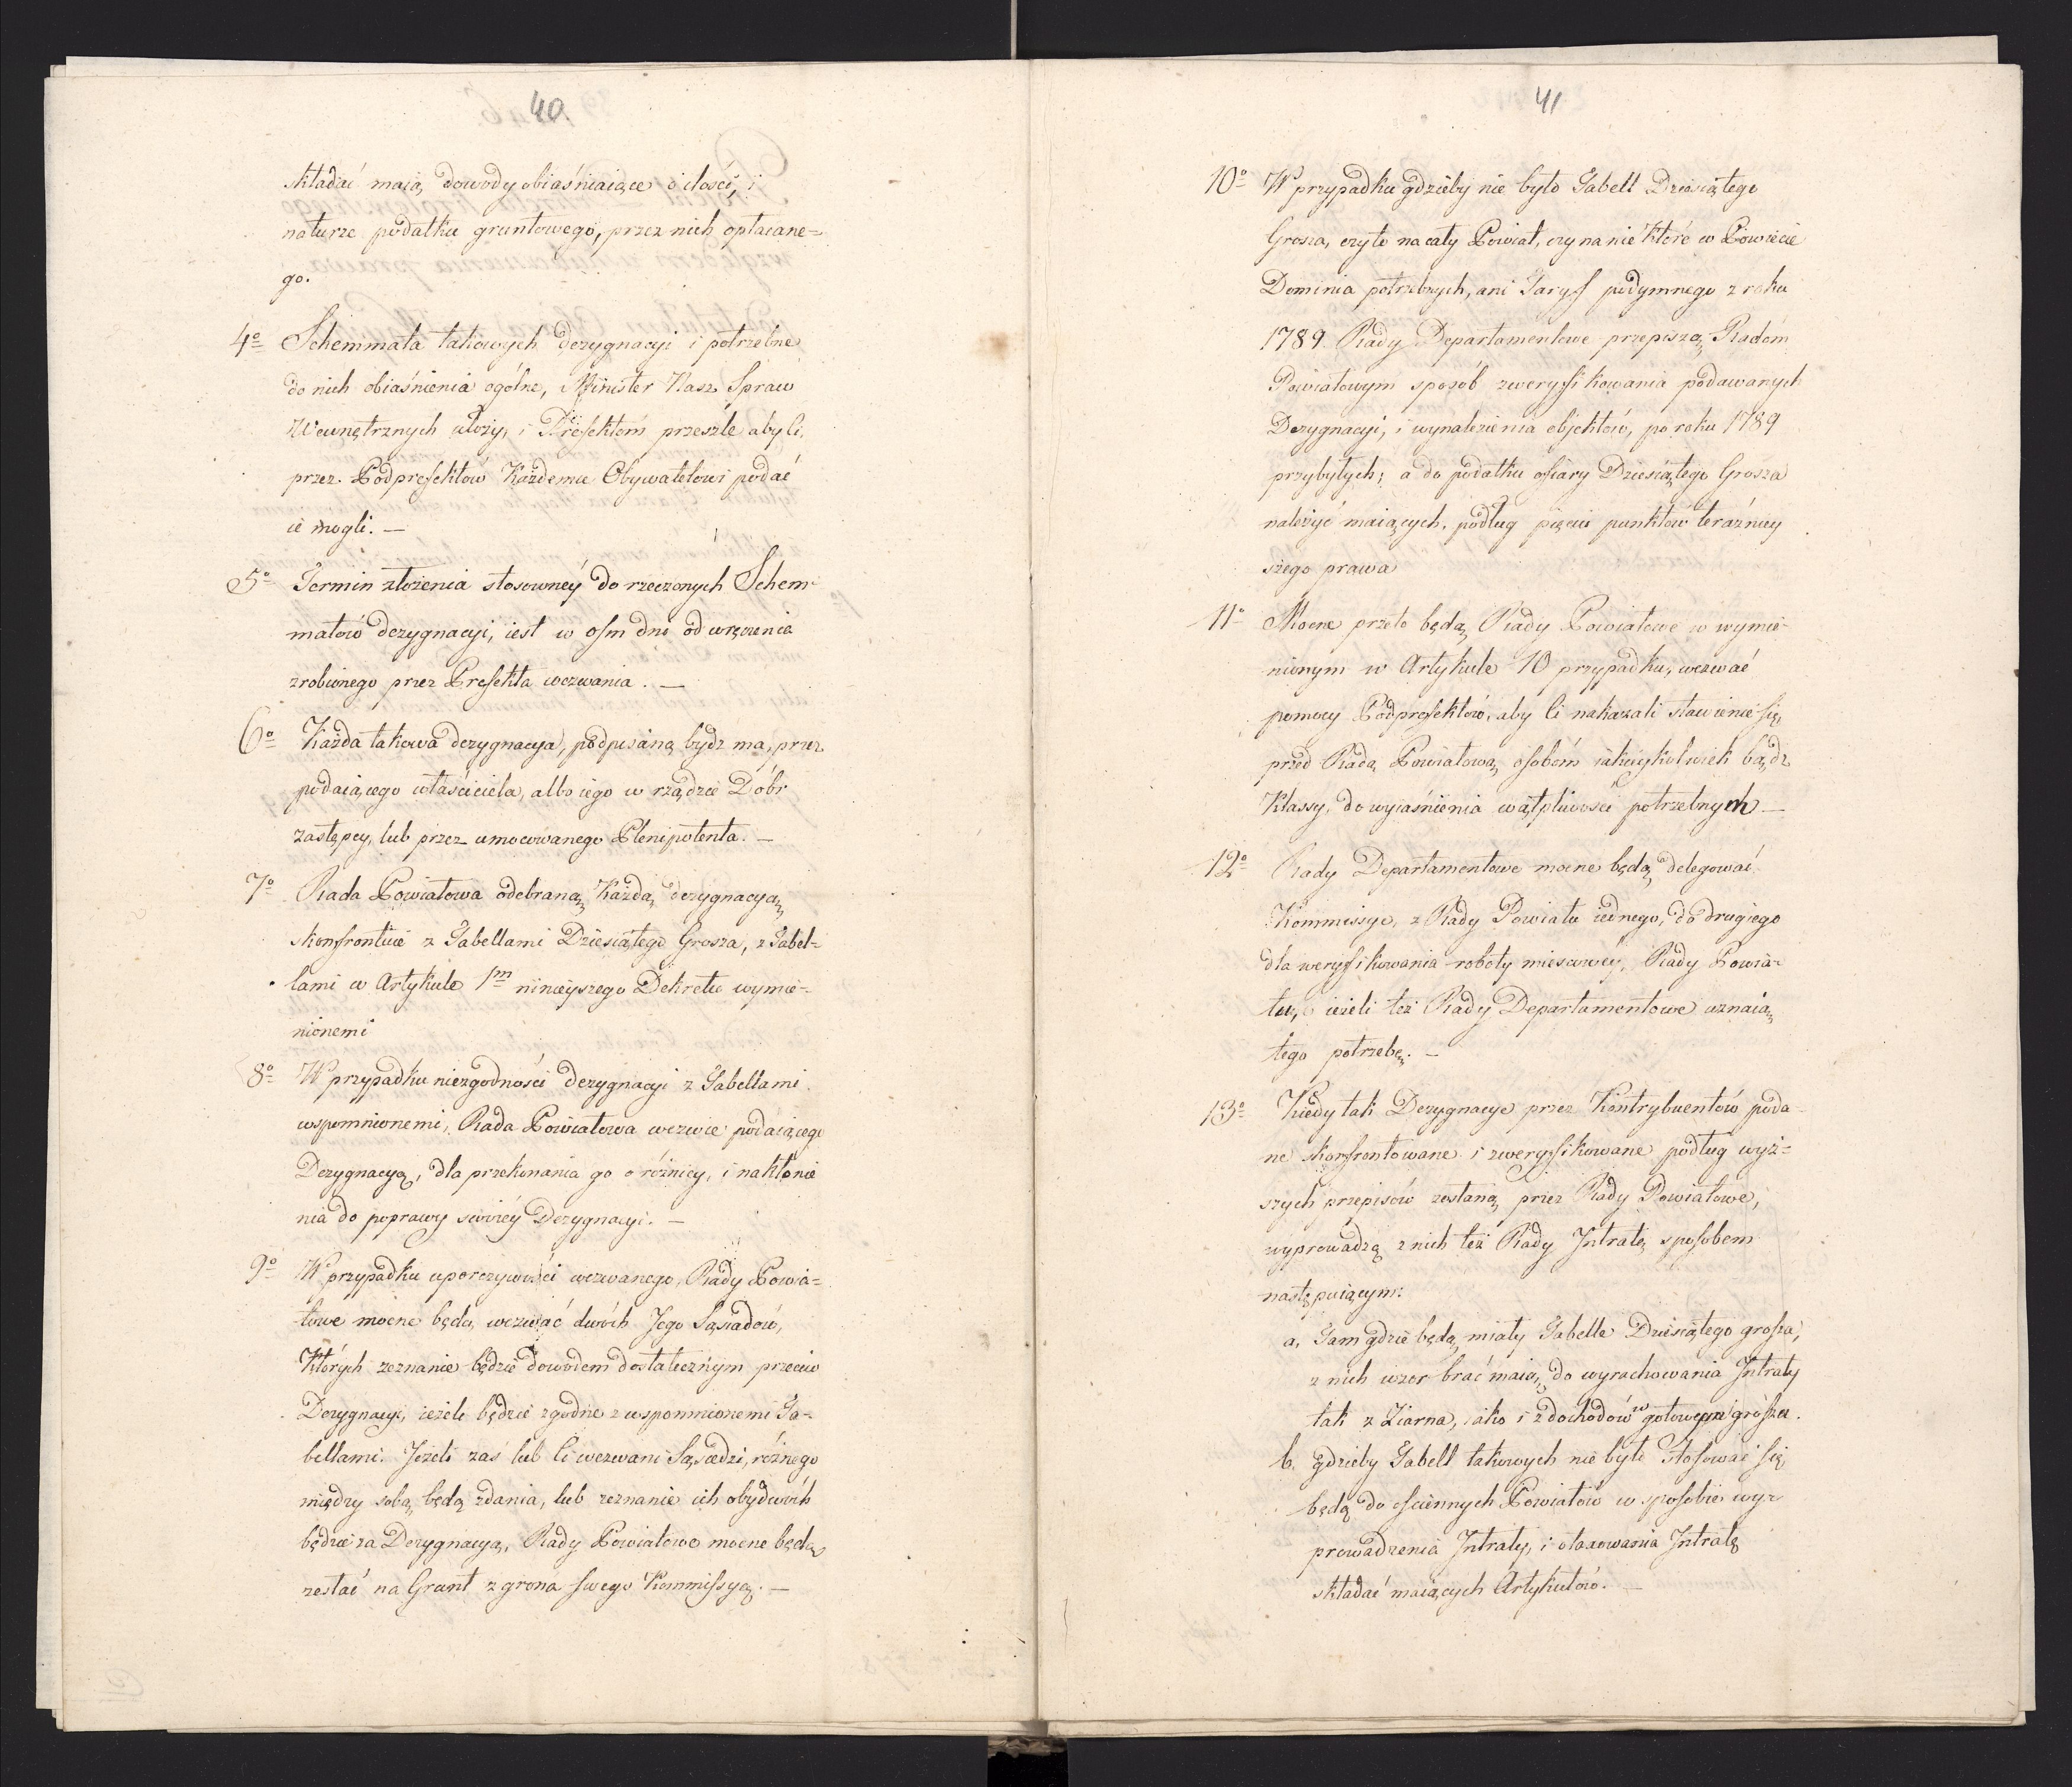 40
składać maią, dowody obiaśniaiące o ilości, i
naturze podatku gruntowego, przez nich opłacane=
go.
4o Schemmata takowych dezygnacyi i potrzebne
do nich obiaśnienia ogólne, Minister Nasz Spraw
Wewnętrznych ułoży, i Prefektom prześle aby Ci,
przez Podprefektów Każdemu Obywatelowi podać
ie mogli. —
5o Termin złożenia stosowney do rzeczonych Schem-
matów dezygnacyi, iest w ośm dni od uręczenia
zrobionego przez Prefekta wezwania. —
6o Każda takowa dezygnacya, podpisaną bydz ma, przez
podaiącego właściciela, albo iego w rządzie Dóbr
zastępcy, lub przez umocowanego Plenipotenta. —
7o Rada Powiatowa odebraną Każdą dezygnacyą,
skonfrontuie z Tabellami Dziesiątego Grosza, z Tabel=
lami w Artykule 1m ninieyszego Dekretu wymie=
nionemi
8o W przypadku niezgodności dezygnacyi z Tabellami
wspomnionemi, Rada Powiatowa wezwie podaiącego
Dezygnacyą, dla przekonania go o różnicy, i nakłonie
nia do poprawy swoiéy Dezygnacyi. —
9o W przypadku uporczywości wezwanego, Rady Powia=
towe mocne będą, wezwać dwóch Jego Sąsiadów,
Których zeznanie będzie dowodem dostatecznym przeciw
Dezygnacyi, ieżeli będzie zgodne z wspomnionemi Ta=
bellami. Jeżeli zaś lub Ci wezwani Sąsiedzi, różnego
między sobą będą zdania, lub zeznanie ich obydwóch
będzie za Dezygnacyą, Rady Powiatowe mocne będą
zesłać na Grunt z grona swego Kommissyą. —
41
10o W przypadku gdzieby nie było Tabell Dziesiątego
Grosza, czyto na cały Powiat, czy na nie Które w Powiecie
Dominia potrzebnych, ani Taryf podymnego z roku
1789 Rady Departamentowe przepiszą Radom
Powiatowym sposób zweryfikowania podawanych
Dezygnacyi, i wynalezienia objektów, po roku 1789
przybyłych; a do podatku ofiary Dziesiątego Grosza
należyć maiących, podług pięciu punktów teraźniey
szego prawa
11o Mocne przeto będą Rady Powiatowe w wymie=
nionym w Artykule 10 przypadku, wezwać
pomocy Podprefektów, aby Ci nakazali stawienie się,
przed Radą Powiatową, osobom iakieykolwiek bądz
Klassy, do wyiaśnienia wątpliwości potrzebnych —
12o Rady Departamentowe mocne będą delegować
Kommissye, z Rady Powiatu iednego, do drugiego
dla weryfikowania roboty mieyscowéy, Rady Powia=
tu, ieżeli też Rady Departamentowe uznaią
tego potrzebę. —
13o Kiedy tak Dezygnacye przez Kontrybuentów poda=
ne skonfrontowane i zweryfikowane podług wyż=
szych przepisów zostaną przez Rady Powiatowe,
wyprowadzą z nich też Rady Intratę sposobem
następuiącym:
a, Tam gdzie będą miały Tabelle Dziesiątego grosza,
z nich wzor brać maią, do wyrachowania Intraty
tak z Ziarna, iako i z dochodów w gotowym groszu.
b. gdzieby Tabell takowych nie było Stosować się
będą do ościennych Powiatów w sposobie wy=
prowadzenia Intraty, i otaxowania Intratę
składać maiących Artykułów. —